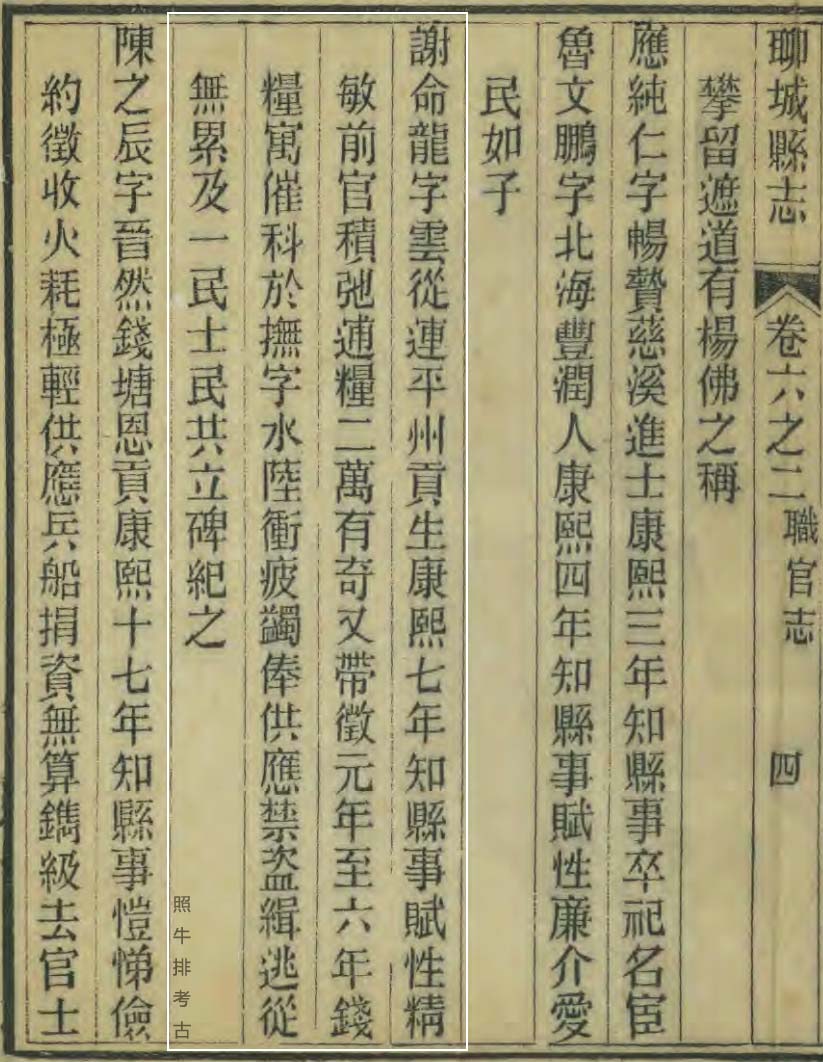 聊城縣志 卷六之二 職官志 四
攀留遮道有楊佛之稱
應純仁字暢贊慈溪進士康熙三年知縣事卒祀名宦
魯文鵬字北海豐潤人康熙四年知縣事賦性廉介愛
民如子
謝命龍字雲從連平州貢生康熙七年知縣事賦性精
敏前官積弛逋糧二萬有奇又帶徵元年至六年錢
糧寓催科於撫字水陸衝疲蠲俸供應禁盜緝逃從
無累及一民士民共立碑紀之
陳之辰字晉然錢塘恩貢康熙十七年知縣事愷悌儉
約徵收火耗極輕供應兵船捐資無算鐫級去官士
照牛排考古